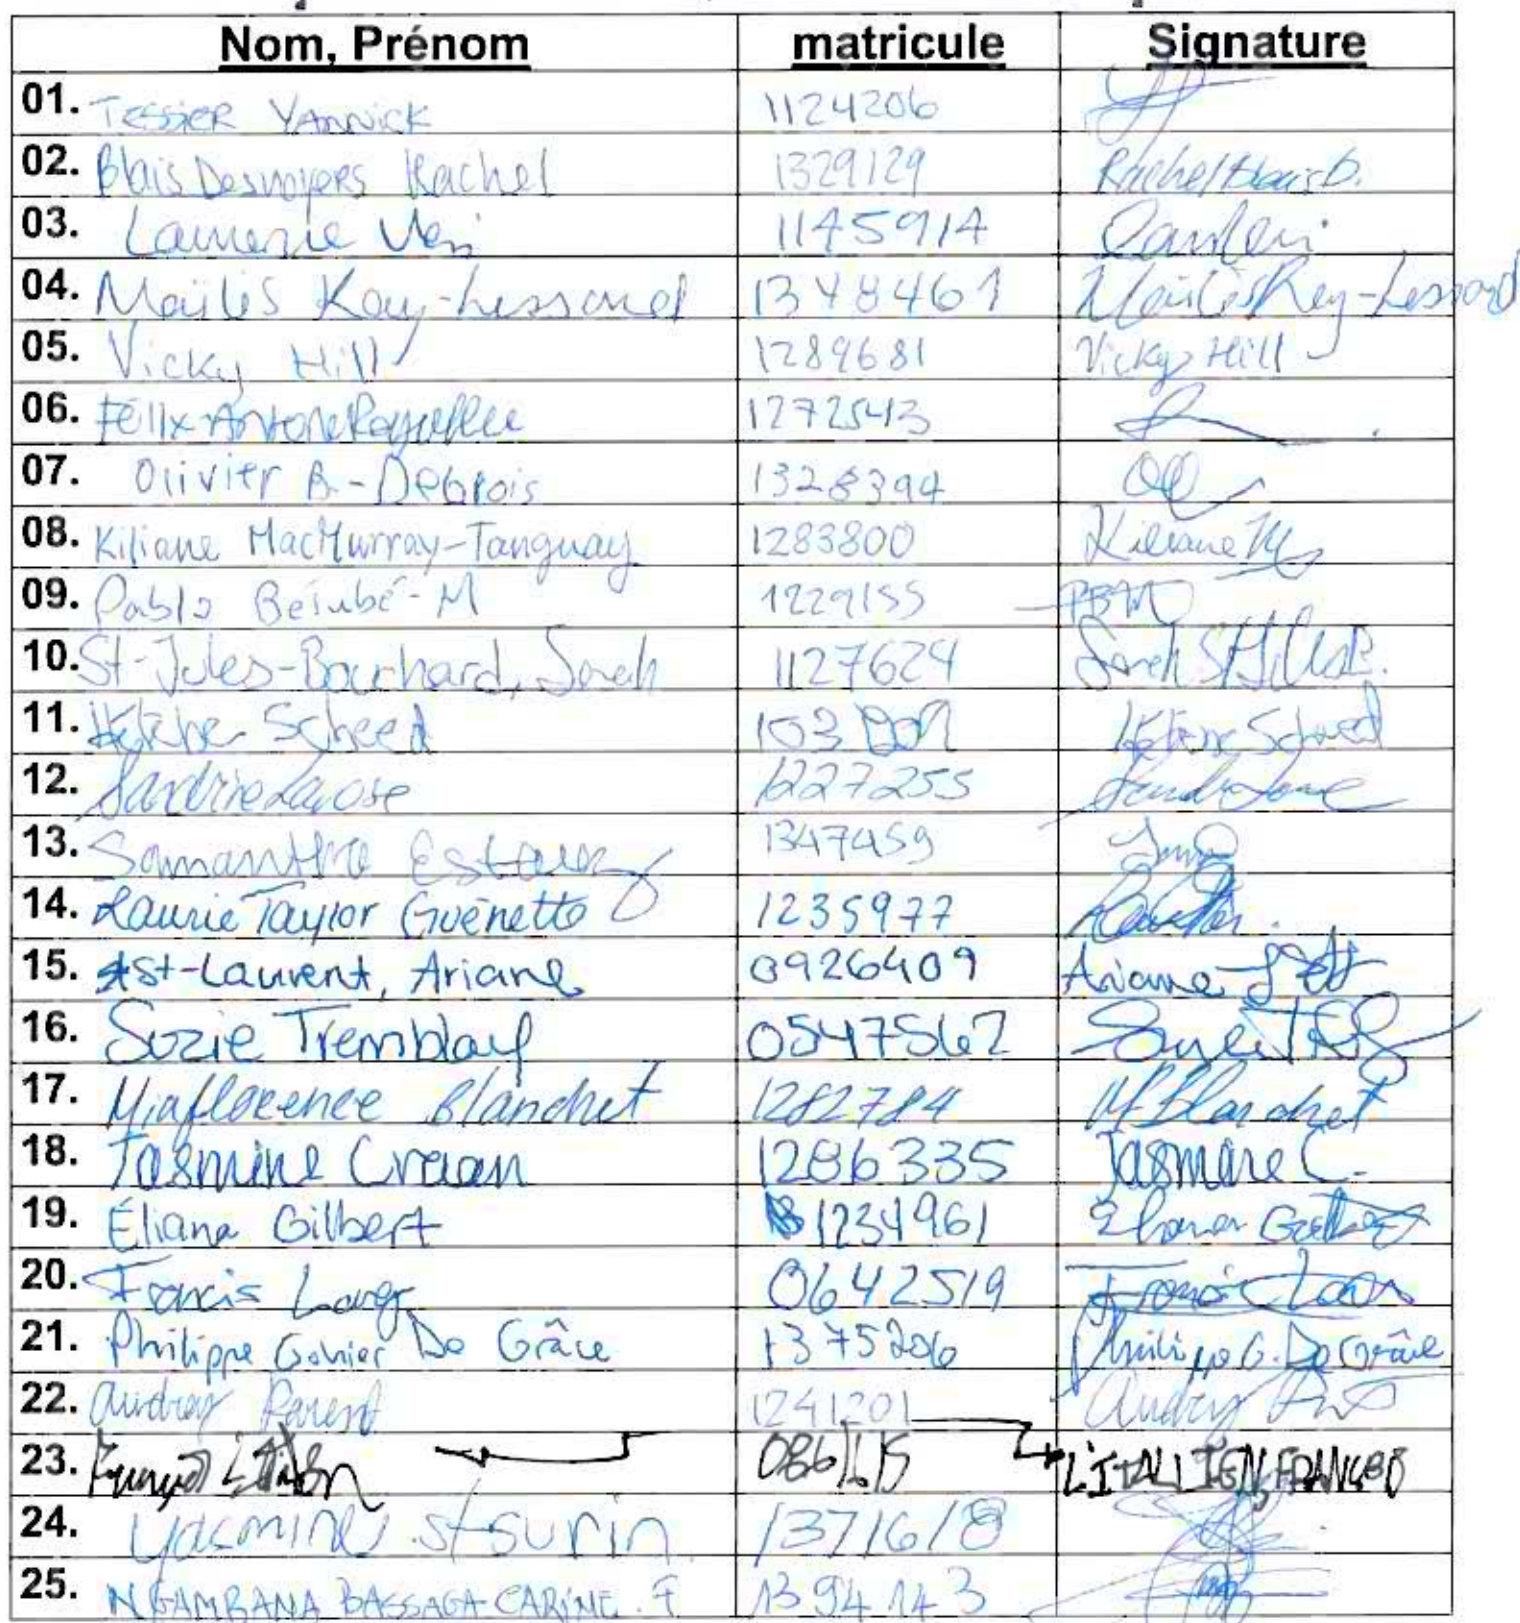 Nom, Prénom matricule Signature
01. TESSIER YANNICK 1124206
02. Blais Desnoyers Rachel 1329129 Rachel Blais D.
03. 1145914
04. Maïlès Roy-Lessard 1348461 Maïlès Roy-Lessard
05. Vicky Hill 1289681 Vicky Hill
06. Félix-Antoine 1272543
07. Olivier B-Deblois 1328394
08. Kiliane MacMurray-Tanguay 1283800 Kiliane M
09. Pablo Bérubé-M 1229155 PBM
10. St-Jules-Bouchard, Sarah 1127624 Sarah
11. Hélène Scheed 103 Hélène Scheed
12. Sandrine Larose 1227255
13. Samantha 1347459
14. Laurie Taylor Guénette 1235977
15. St-Laurent, Ariane 0926409 Ariane
16. Suzie Tremblay 0547562
17. Miaflorence Blanchet 1282784 M Blanchet
18. Jasmine Craan 1286335 Jasmine C.
19. Éliane Gilbert 1234961 Éliane Gilbert
20. Francis Lang 0642519 Francis
21. Philippe Gohier De Grâce 1375206 Philippe G. De Grâce
22. Audrey Parent 1241201 Audrey
23. L'ITALLIEN, FRANÇOIS
24. Yasmine St Surin 1371618
25. NGAMBANA BASSAGA CARINE. F 1394143